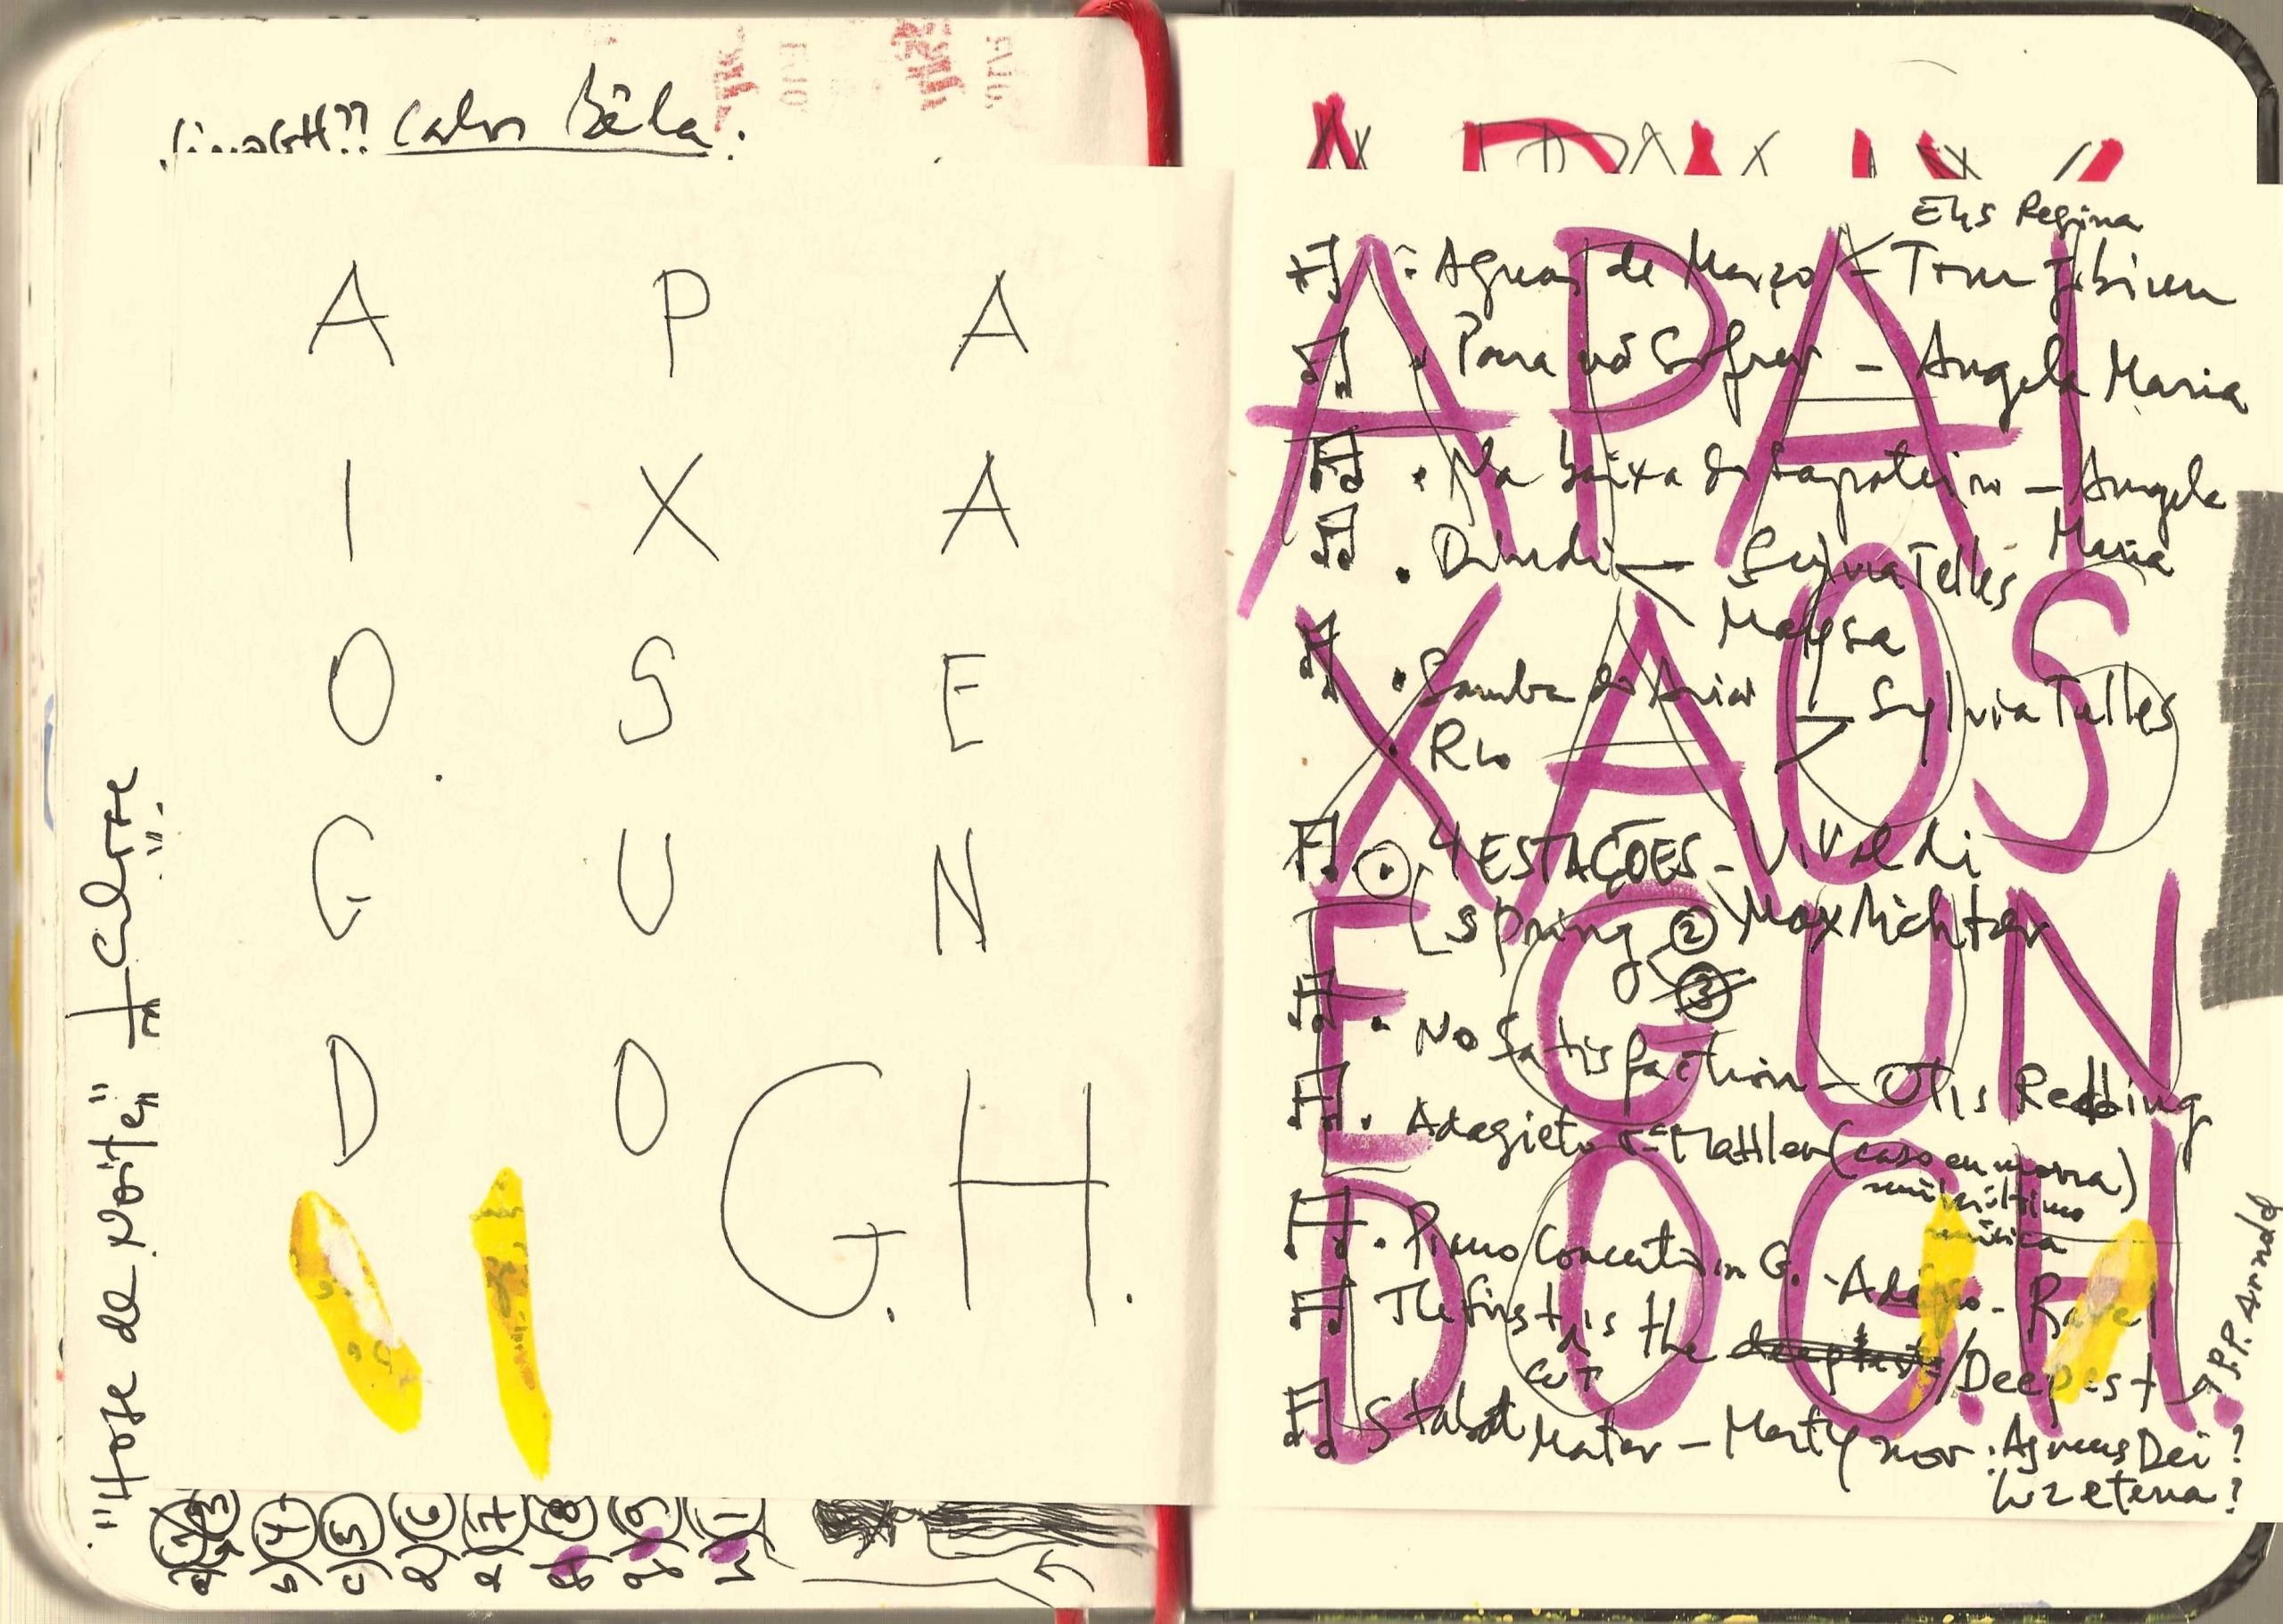 Calvo Béla.
A P A
I X A
O S E
G U N
D O
G.H.
"Hoje de Noite"
APAI
XAOS
EGUN
DOG.H.
Elis Regina
Aguas de Março - Tom Jobim
Para não Sofrer - Angela Maria
Na baixa do Sapateiro - Angela
Maria
Dindi - Sylvia Telles
Maysa
Samba do Avião - Sylvia Telles
Rio
4 ESTAÇÕES - Vivaldi
(spring ② Max Richter
③
No Satisfaction - Otis Redding
Adagieto - Mathler (caso eu morra)
última
música
Piano Concerto in G. - Adagio - Ravel
The first is the deepest / Deepest
cut
P.P. Arnold
Stabat Mater - Martynov : Agnus Dei?
Luz eterna?
a) b) c) d) e) f) g) h)
4 5 6 7 8 9 1